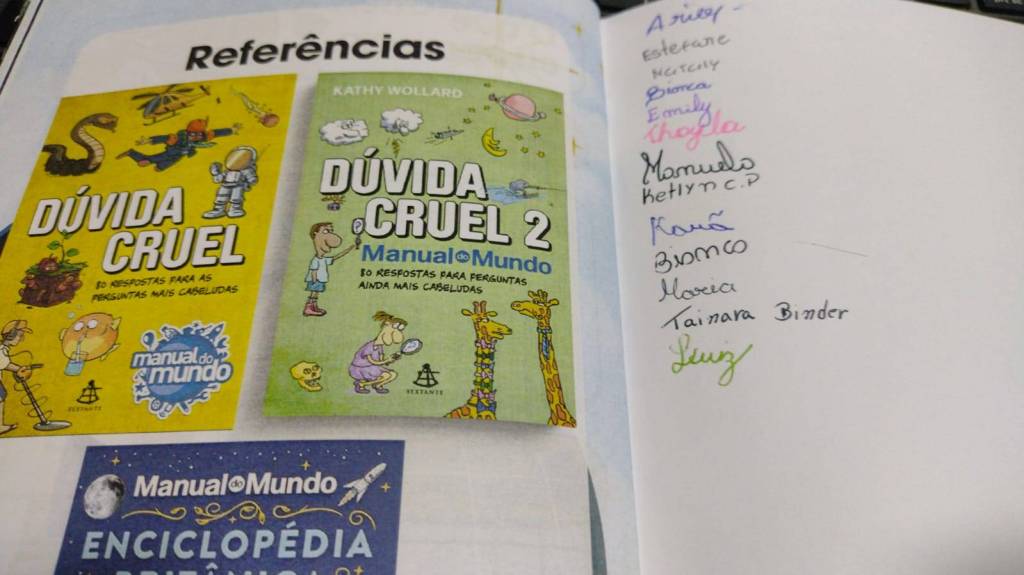 Referências
DÚVIDA
CRUEL
80 RESPOSTAS PARA AS
PERGUNTAS MAIS CABELUDAS
manual do
mundo
SEXTANTE
KATHY WOLLARD
DÚVIDA
CRUEL 2
Manual do Mundo
80 RESPOSTAS PARA PERGUNTAS
AINDA MAIS CABELUDAS
SEXTANTE
Manual do Mundo
ENCICLOPÉDIA
BRITÂNICA
Estefane
Bianca
Emily
Manuela
Ketlyn C.P
Kauã
Bianco
Maria
Tainara Binder
Luiz